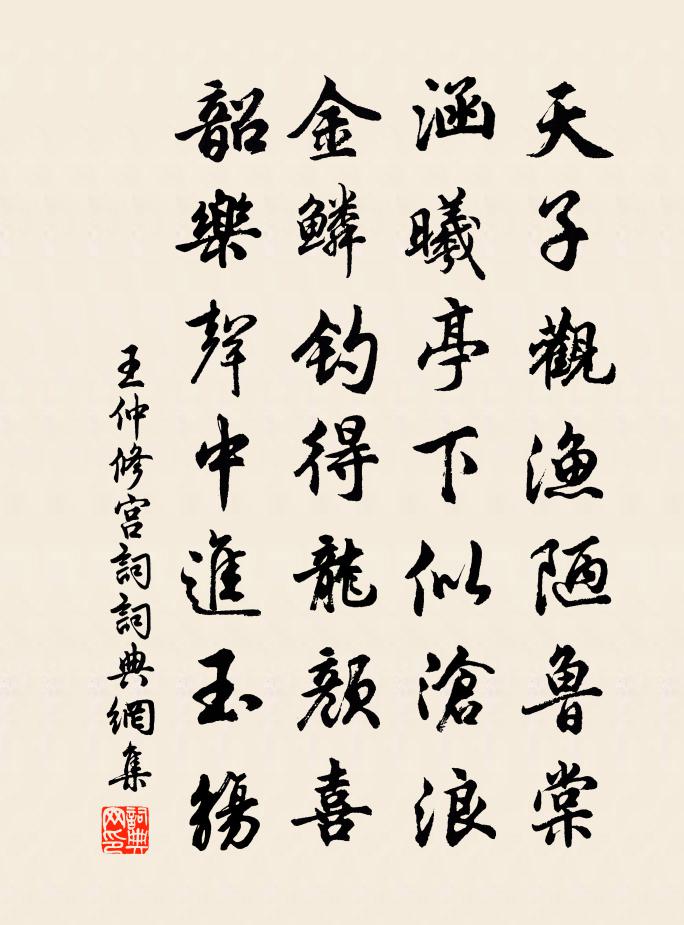 天子觀漁陋魯棠
涵曦亭下似滄浪
金鱗釣得龍顏喜
韶樂聲中進玉觴
王仲修宮詞詞典網集
詞典網印